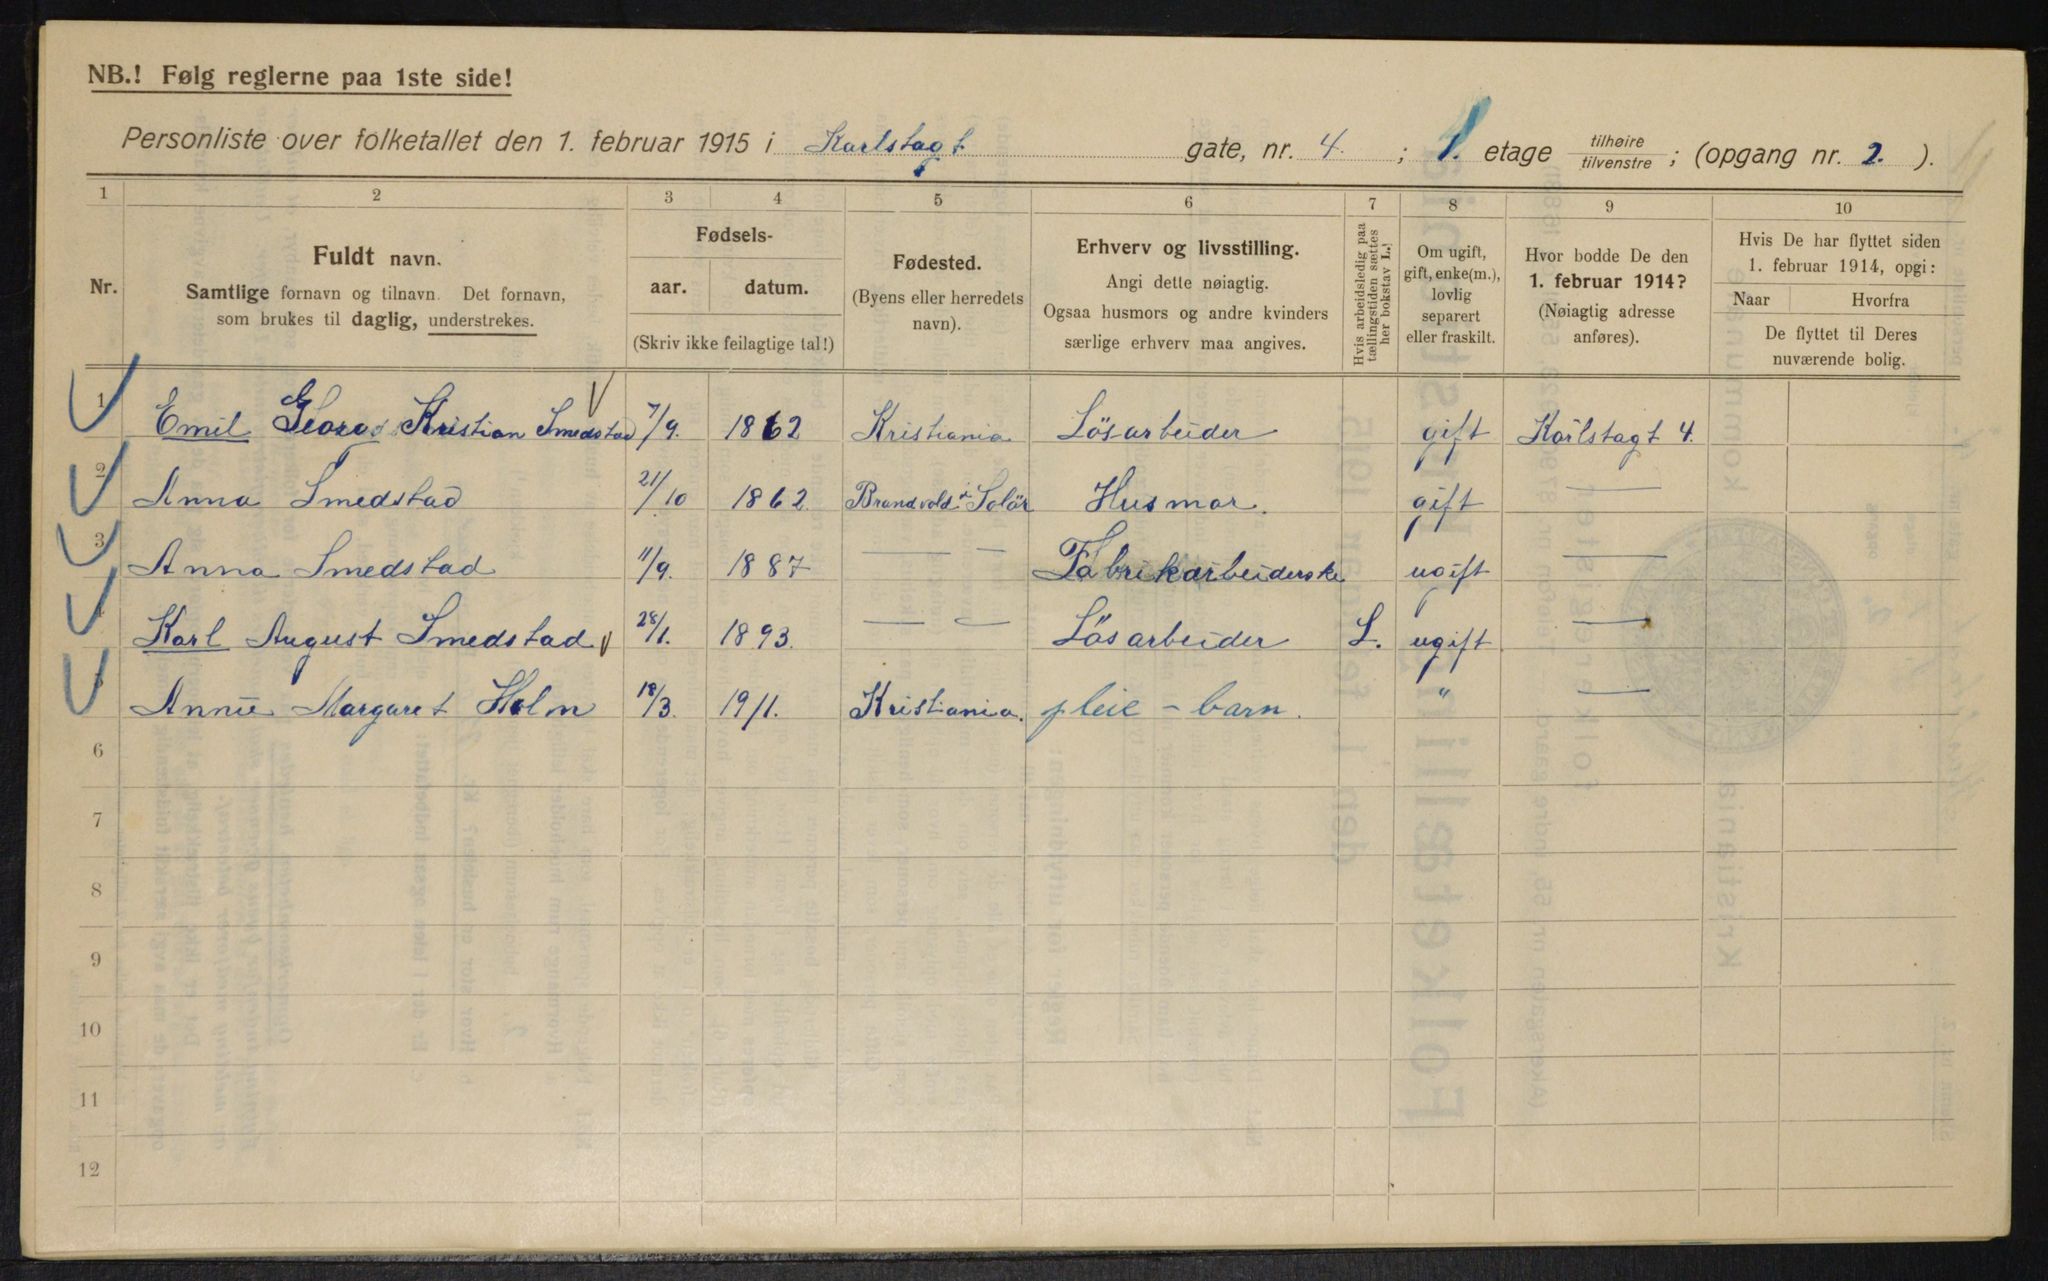 NB.! Følg reglerne paa 1ste side!
Personliste over folketallet den 1. februar 1915 i Karlstagt gate, nr. 4. ; 1. etage tilhøire tilvenstre ; (opgang nr. 2. ).
1 2 3 4 5 6 7 8 9 10
Nr.
Fuldt navn.
Samtlige fornavn og tilnavn. Det fornavn,
som brukes til daglig, understrekes.
Fødsels-
aar. datum.
(Skriv ikke feilagtige tal!)
Fødested.
(Byens eller herredets
navn).
Erhverv og livsstilling.
Angi dette nøiagtig.
Ogsaa husmors og andre kvinders
særlige erhverv maa angives.
Hvis arbeidsledig paa
tællingstiden sættes
her bokstav L.!
Om ugift,
gift, enke(m.),
lovlig
separert
eller fraskilt.
Hvor bodde De den
1. februar 1914?
(Nøiagtig adresse
anføres).
Hvis De har flyttet siden
1. februar 1914, opgi:
Naar Hvorfra
De flyttet til Deres
nuværende bolig.
1 Emil Georg Kristian Smedstad 7/9. 1862 Kristiania Lösarbeider gift Karlstagt 4.
2 Anna Smedstad 21/10 1862. Brandvold i Solör Husmor. gift —
3 Anna Smedstad 11/9. 1887 — — Fabrikarbeiderske ugift —
4 Karl August Smedstad 28/1. 1893. — — Lösarbeider L. ugift —
5 Annie Margaret Holm 18/3. 1911. Kristiania. pleie - barn. " —
6
7
8
9
10
11
12